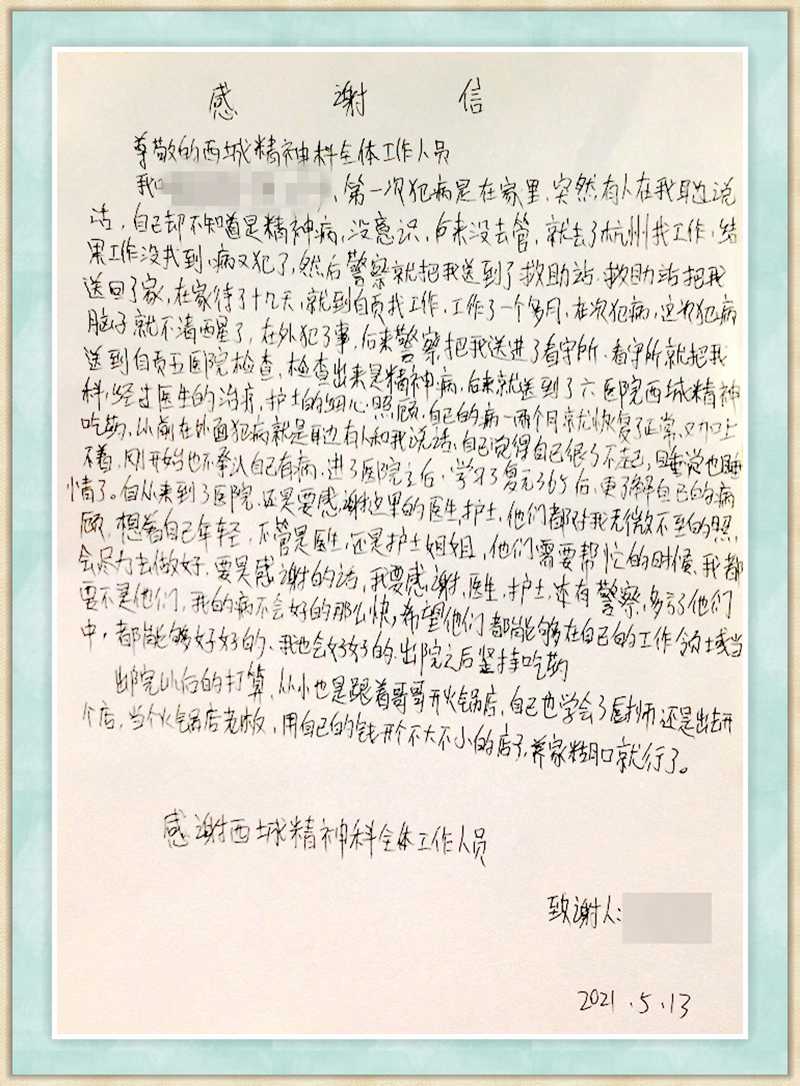 感 谢 信
尊敬的西城精神科全体工作人员
我 、第一次犯病是在家里，突然有人在我耳边说
话，自己却不知道是精神病，没意识，后来没去管，就去了杭州找工作，结
果工作没找到，病又犯了，然后警察就把我送到了救助站，救助站把我
送回了家，在家待了十几天，就到自贡找工作，工作了一个多月，在次犯病，这次犯病
脑子就不清醒了，在外犯了事，后来警察把我送进了看守所，看守所就把我
送到自贡五医院检查，检查出来是精神病，后来就送到了六医院西城精神
科，经过医生的治疗，护士的细心照顾，自己的病一两个月就恢复了正常，又加上
吃药，从前在外面犯病就是耳边有人和我说话，自己觉得自己很了不起，睡觉也睡
不着，刚开始也不承认自己有病，进了医院之后，学习了复元365后，更了解自己的病
情了。自从来到了医院，还是要感谢这里的医生，护士，他们都对我无微不至的照
顾，想着自己年轻，不管是医生，还是护士姐姐，他们需要帮忙的时候，我都
会尽力去做好，要是感谢的话，我要感谢，医生，护士，还有警察，多亏了他们
要不是他们，我的病不会好的那么快，希望他们都能够在自己的工作领域当
中，都能够好好的，我也会好好的，出院之后坚持吃药
出院以后的打算，从小也是跟着哥哥开火锅店，自己也学会了厨师还是出去开
个店，当个火锅店老板，用自己的钱开个不大不小的店子，养家糊口就行了。
感谢西城精神科全体工作人员
致谢人：
2021.5.13